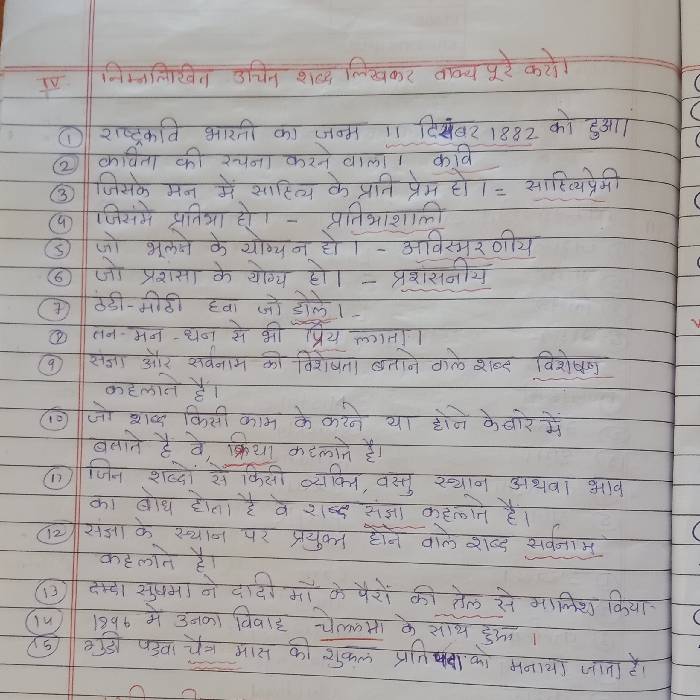 IV निम्नलिखित उचित शब्द लिखकर वाक्य पूरे करो।
1 राष्ट्रकवि भारती का जन्म 11 दिसंबर 1882 को हुआ।
2 कविता की रचना करने वाला। कवि
3 जिसके मन में साहित्य के प्रति प्रेम हो। = साहित्यप्रेमी
4 जिसमे प्रतिभा हो। - प्रतिभाशाली
5 जो भूलने के योग्य न हो। - अविस्मरणीय
6 जो प्रशंसा के योग्य हो। - प्रशंसनीय
7 ठंडी-मीठी हवा जो डोले। -
8 तन-मन-धन से भी प्रिय लगता।
9 संज्ञा और सर्वनाम की विशेषता बताने वाले शब्द विशेषण
कहलाते हैं।
10 जो शब्द किसी काम के करने या होने के बारे में
बताते है वे, क्रिया कहलाते है।
11 जिन शब्दों से किसी व्यक्ति, वस्तु स्थान अथवा भाव
का बोध होता है वे शब्द संज्ञा कहलाते हैं।
12 संज्ञा के स्थान पर प्रयुक्त होने वाले शब्द सर्वनाम
कहलाते है।
13 सुषमा ने दादी माँ के पैरों की तेल से मालिश किया-
14 में उनका विवाह चेल्लमा के साथ हुआ।
15 गुडी पडवा चैत्र मास की शुक्ल प्रतिपदा को मनाया जाता है।